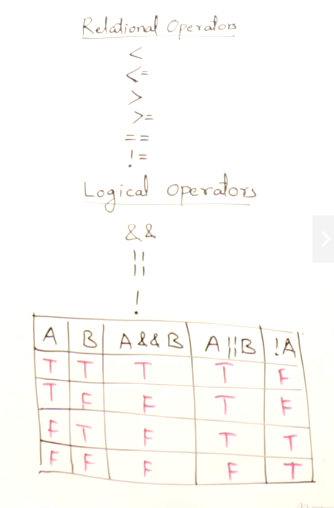 Relational Operators
<
<=
>
>=
==
!=
Logical Operators
&&
||
!
A B A&&B A||B !A
T T T T F
T F F T F
F T F T T
F F F F T